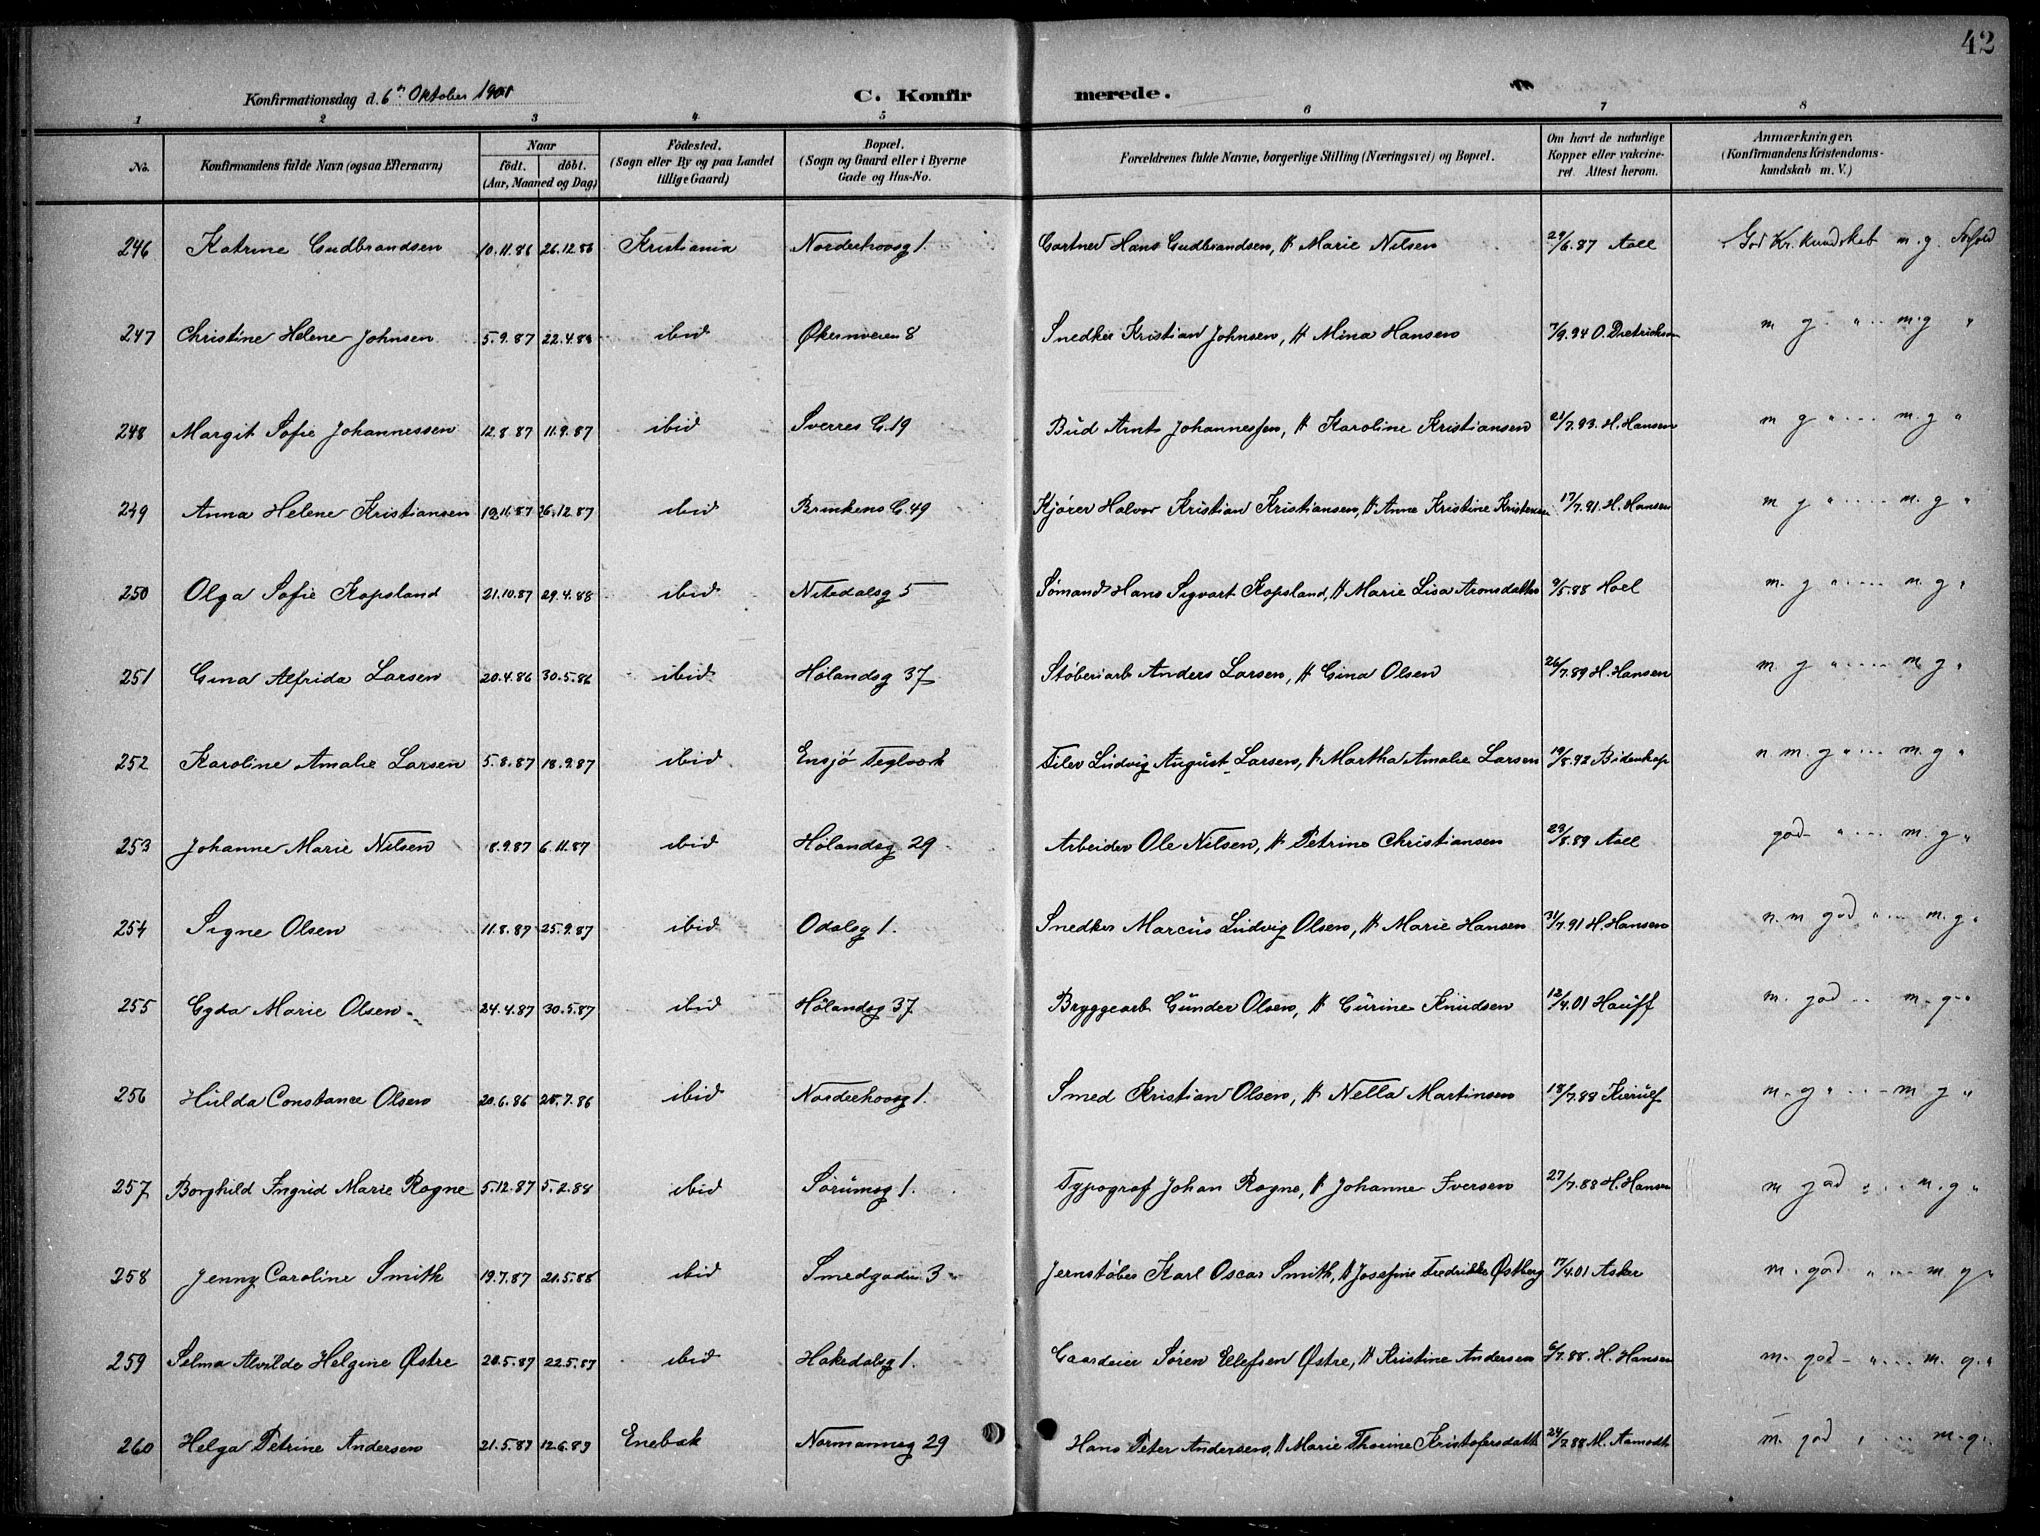 42
Konfirmationsdag d. 6te Oktober 1901 C. Konfirmerede.
1 2 3 4 5 6 7 8
No. Konfirmandens fulde Navn (ogsaa Efternavn) Naar födt. döbt. (Aar, Maaned og Dag) Födested. (Sogn eller By og paa Landet tillige Gaard) Bopæl. (Sogn og Gaard eller i Byerne Gade og Hus-No. Forældrenes fulde Navne, borgerlige Stilling (Næringsvei) og Bopæl. Om havt de naturlige Kopper eller vakcineret. Attest herom. Anmærkninger. (Konfirmandens Kristendomskundskab m. V.)
246 Katrine Gudbrandsen 10.11.86 26.12.86 Kristiania Norderhovsg 1. Gartner Hans Gudbrandsen, H Marie Nilsen 29/6.87 Aall God Kr. kundskab m. g. Forhold
247 Christine Helene Johnsen 5.9.87 22.4.88 ibid Økernveien 8 Snedker Kristian Johnsen, H Mina Hansen 7/9.94 O. Dietrichson m g " m g "
248 Margit Sofie Johannessen 12.8.87 11.9.87 ibid Sverres G. 19 Bud Arnt Johannessen, H Karoline Kristiansen 21/7.93. H. Hansen m g " m. g "
249 Anna Helene Kristiansen 10.11.87 26.12.87 ibid Brinkens G. 49 Kjører Halvor Kristian Kristiansen, H Anne Kristine Kristensen 17/7.91. H. Hansen m g " m. g "
250 Olga Sofie Kopsland 21.10.87 29.4.88 ibid Nitedalsg 5 Sømand Hans Sigvart Kopsland, H Marie Lisa Aronsdatter 9/5.88 Hoel m. g " m. g "
251 Gina Alfrida Larsen 20.4.86 30.5.86 ibid Hølandsg 37 Støberiarb Anders Larsen, H Gina Olsen 26/7.89 H. Hansen m. g " m g "
252 Karoline Amalie Larsen 5.8.87 18.9.87 ibid Ensjø Teglverk Filer Ludvig August Larsen, H Martha Amalie Larsen 19/8.92 Bidenkap n m. g " m. g "
253 Johanne Marie Nilsen 8.9.87 6.11.87 ibid Hølandsg 29 Arbeider Ole Nilsen, H Petrine Christiansen 23/8.89 Aall god " m. g "
254 Signe Olsen 11.8.87 25.9.87 ibid Odalsg 1. Snedker Marcus Ludvig Olsen, H Marie Hansen 31/7.91 H. Hansen n. m god " m. g "
255 Gyda Marie Olsen 24.4.87 30.5.87 ibid Hølandsg 37 Bryggearb Gunder Olsen, H Gurine Knudsen 12/4.01 Hauff m. god m. g "
256 Hulda Constance Olsen 20.6.86 25.7.86 ibid Norderhovsg 1. Smed Kristian Olsen, H Nella Martinsen 18/7.88 Kierulf m. g " m g "
257 Borghild Ingrid Marie Rogne 5.12.87 5.2.88 ibid Sørumsg 1. Typograf Johan Rogne, H Johanne Iversen 27/7.88 H. Hansen m god " m. g "
258 Jenny Caroline Smith 19.7.87 21.5.88 ibid Smedgaden 3 Jernstøber Karl Oscar Smith, H Josefine Fredrikke Østberg 17/4.01 Asker m. god " m. g "
259 Selma Alvilde Helgine Østre 20.5.87 22.5.87 ibid Hakedalsg 1. Gaardeier Søren Ellefsen Østre, H Kristine Andersen 6/7.88. H. Hansen m. god " m. g. "
260 Helga Petrine Andersen 21.5.87 12.6.87 Enebak Normannsg 29 Hans Peter Andersen, H Marie Thorine Kristofersdatter 24/7.88 M. Aamodt m. god " m. g.